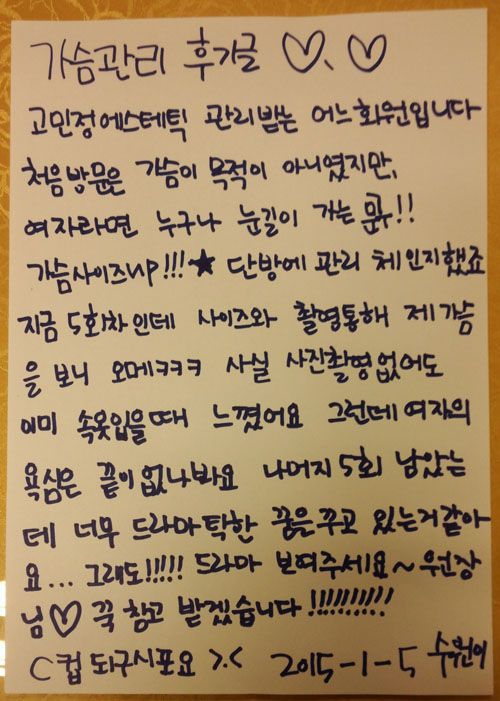 가슴관리 후기글 ♡.♡
고민정에스테틱 관리받는 어느회원입니다
처음방문은 가슴이 목적이 아니였지만,
여자라면 누구나 눈길이 가는 문구!!
가슴사이즈up!!!★ 단방에 관리 체인지했죠
지금 5회차인데 사이즈와 촬영통해 제가슴
을 보니 오메ㅋㅋㅋ 사실 사진촬영없어도
이미 속옷입을때 느꼈어요 그런데여자의
욕심은 끝이없나봐요 나머지5회 남았는
데 너무 드라마틱한 꿈을꾸고 있는거같아
요... 그래도!!!!! 드라마 보여주세요~원장
님♡ 꾹참고 받겠습니다!!!!!!!!!!
C컵 되구시포요 >.< 2015-1-5 수원이